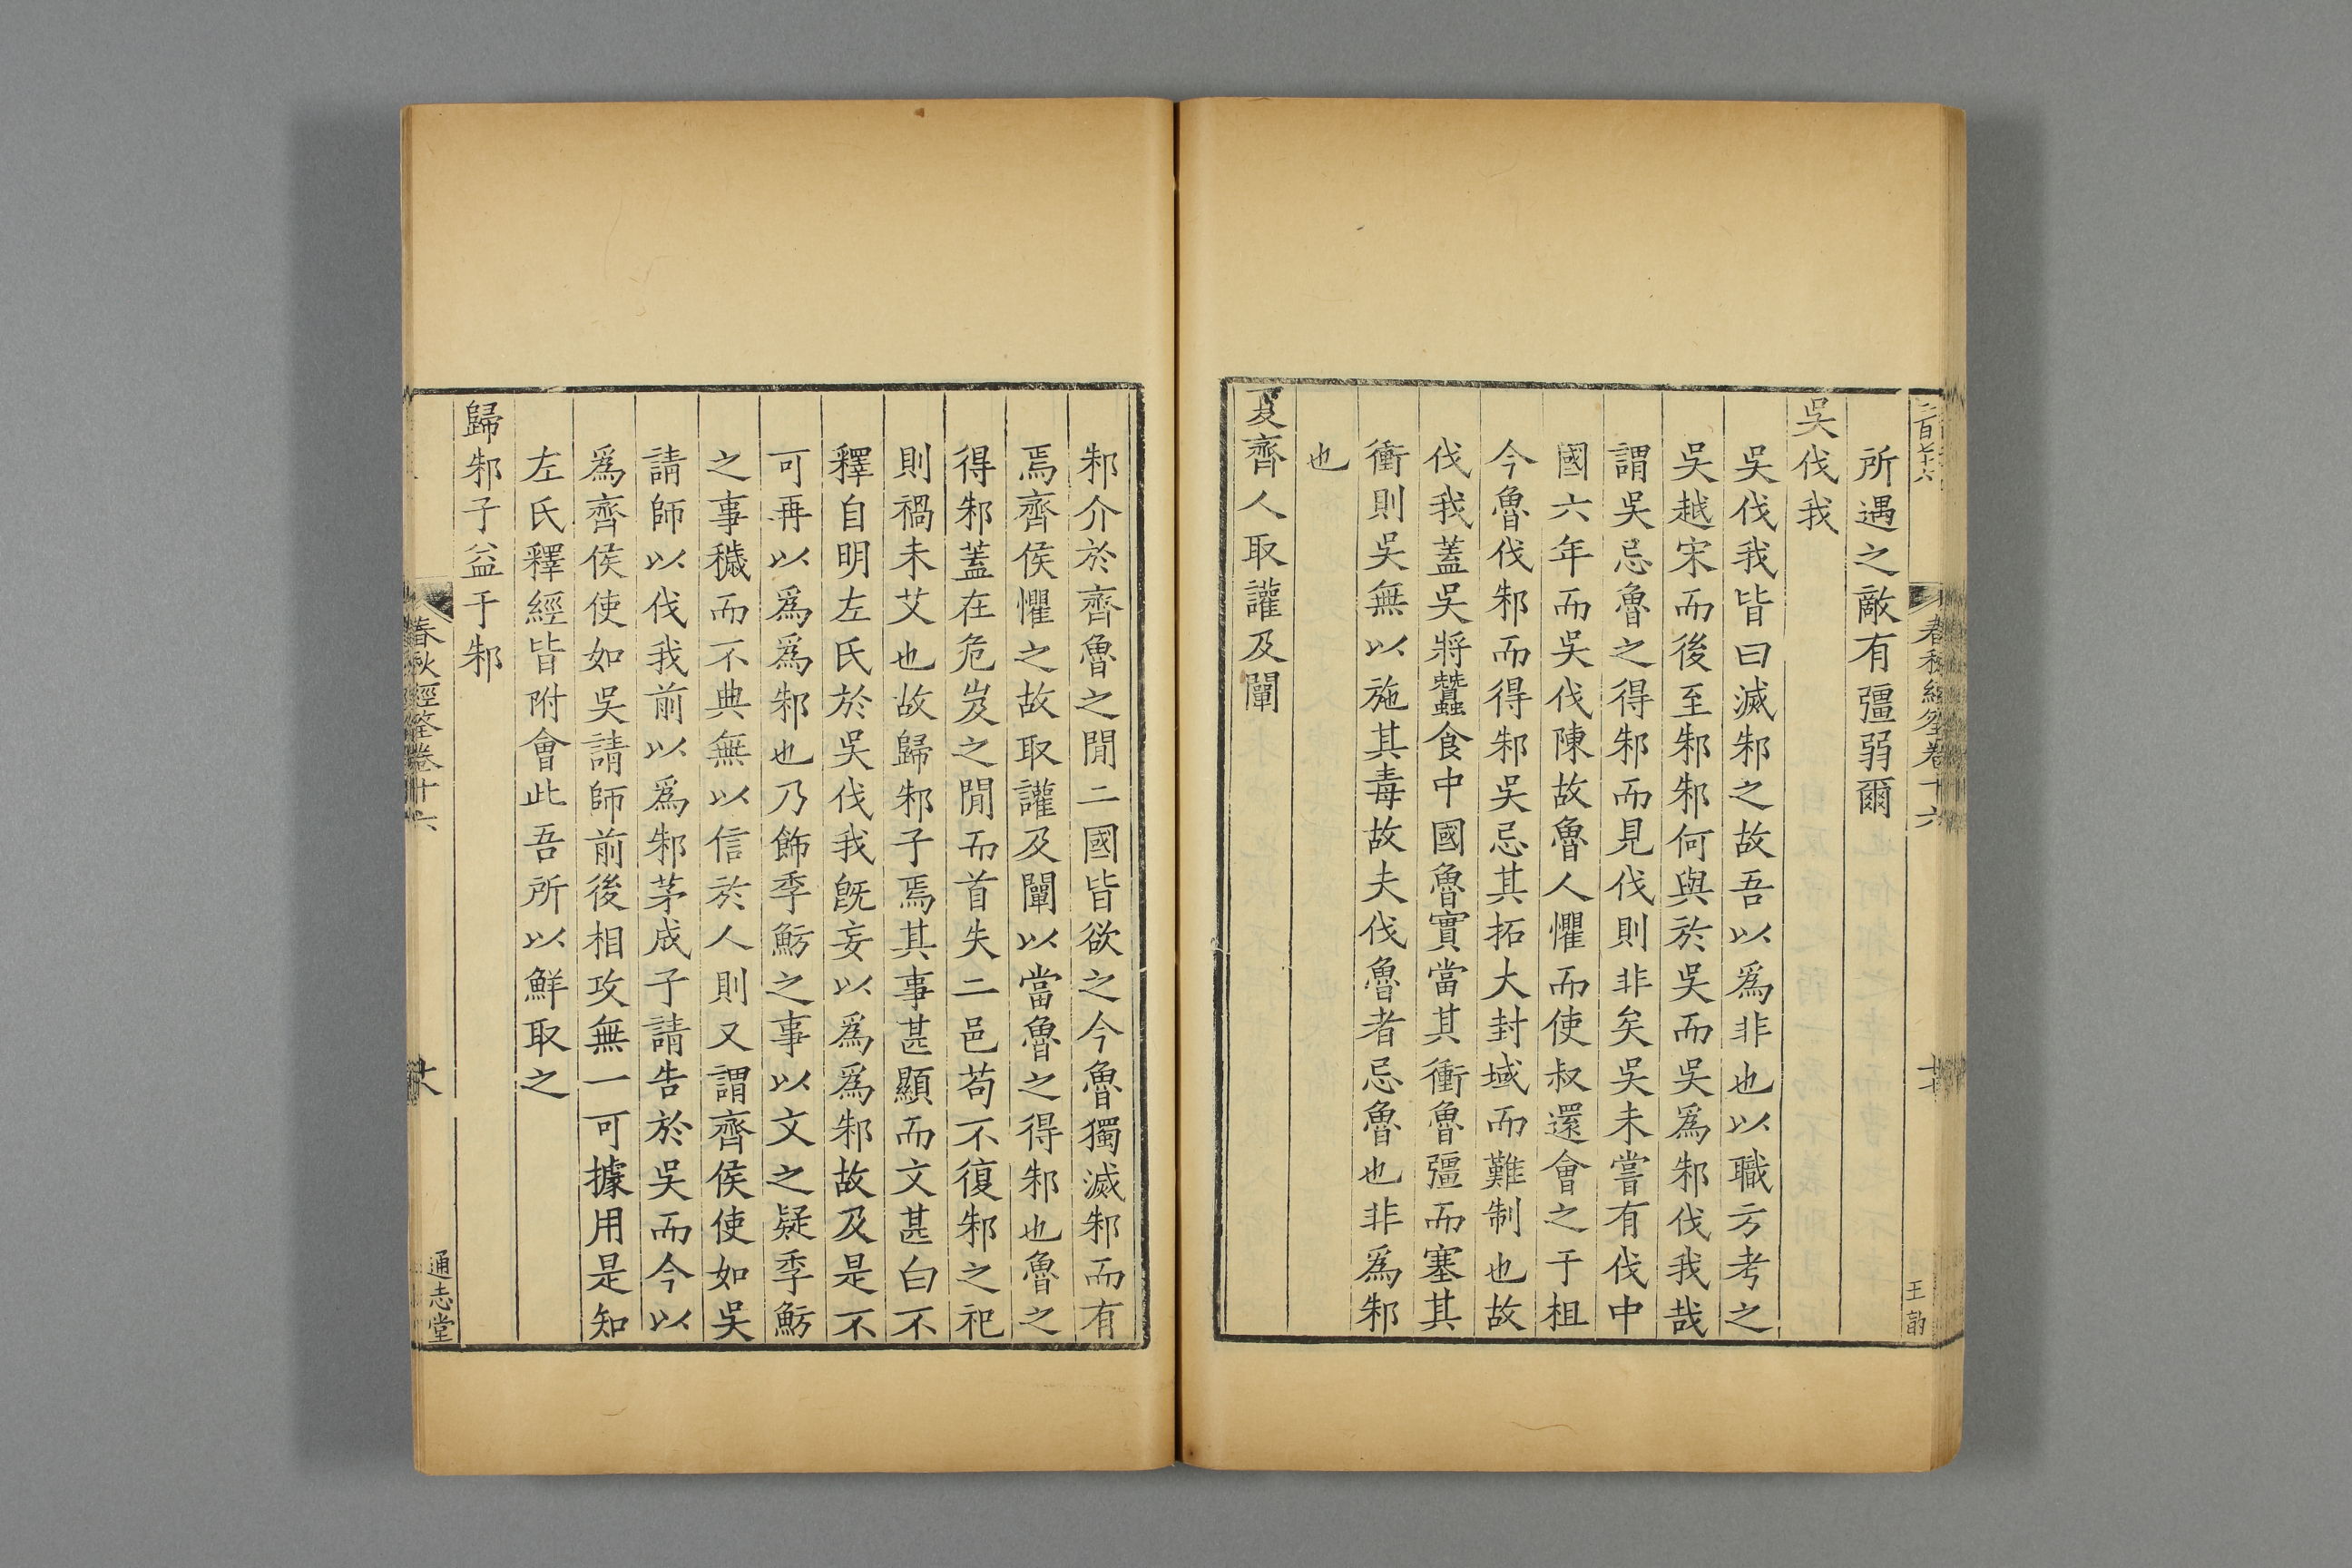 二百七十六
春秋經筌卷十六
王勛
所遇之敵有彊弱爾
吳伐我
吳伐我皆曰滅邾之故吾以爲非也以職方考之
吳越宋而後至邾邾何與於吳而吳爲邾伐我哉
謂吳忌魯之得邾而見伐則非矣吳未嘗有伐中
國六年而吳伐陳故魯人懼而使叔還會之于柤
今魯伐邾而得邾吳忌其拓大封域而難制也故
伐我蓋吳將蠶食中國魯實當其衝魯彊而塞其
衝則吳無以施其毒故夫伐魯者忌魯也非爲邾
也
夏齊人取讙及闡
邾介於齊魯之閒二國皆欲之今魯獨滅邾而有
焉齊侯懼之故取讙及闡以當魯之得邾也魯之
得邾蓋在危岌之閒而首失二邑苟不復邾之祀
則禍未艾也故歸邾子焉其事甚顯而文甚白不
釋自明左氏於吳伐我旣妄以爲爲邾故及是不
可再以爲爲邾也乃飾季魴之事以文之疑季魴
之事穢而不典無以信於人則又謂齊侯使如吳
請師以伐我前以爲邾茅成子請告於吳而今以
爲齊侯使如吳請師前後相攻無一可據用是知
左氏釋經皆附會此吾所以鮮取之
歸邾子益于邾
春秋經筌卷十六
通志堂